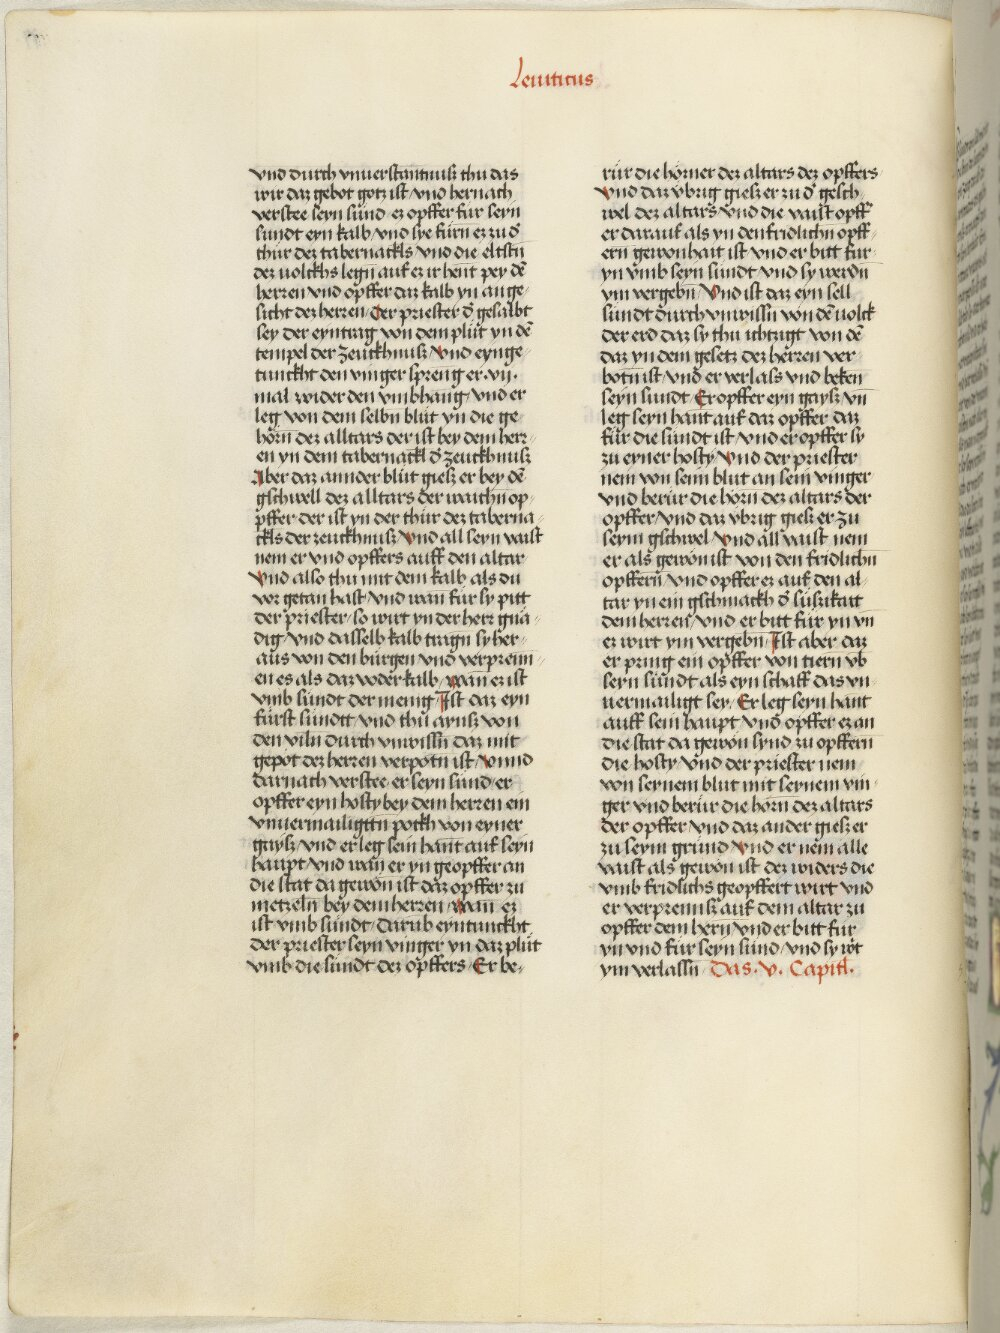 Leuiticus
vnd durch vnuerstantnuß thu das
wir daz gebot gotz ist / vnd hernach
verstee seyn sünd · ez opffer für seyn
sundt eyn kalb / vnd sye fürn ez zu d̄
thür dez tabernackls / vnd die eltstn̄
dez uolckhs legn̄ auf ez ir hent pey dē
herren vnd opffer daz kalb yn ange⸗
sicht dez herren / Der priester d̄ gesalbt
sey der eyntrag von dem plut yn dē
tempel der zeuckhnuß / vnd eynge⸗
tunckht den vinger spreng er .vij.
mal wider den vmbhang / vnd er
leg von dem selbn̄ blüt yn die ge
hörn dez alltars der ist bey dem herr⸗
en yn dem tabernackl d̄ zeuckhnuß
Aber daz annder blüt gieß er bey dē
gschwell dez alltars der waichn̄ op⸗
pffer der ist yn der thür dez taberna⸗
ckls der zeuckhnuß / Vnd all seyn vaist
nem er vnd opffers auff den altar
Vnd also thu mit dem kalb als du
vor getan hast / vnd wan̄ für sy pitt
der priester / so wirt yn der herr gna⸗
dig / vnd dasselb kalb tragn̄ sy her⸗
aus von den bürgen vnd verprenn⸗
en es als daz voder kalb / wan̄ ez ist
vmb sündt der menig / Ist daz eyn
fürst sündtt / vnd thu aynß von
den viln̄ durch vnwissn̄ daz mit
gepot dez herren verpotn̄ ist / vnnd
darnach verstee er seyn sünd / er
opffer eyn hosty bey dem herren ein
vnuermailigttn̄ pockh von eyner
gayß / vnd er leg sein hant auf seyn
haupt / vnd wan̄ er yn geopffer an
die stat da gewon ist daz opffer zu
metzeln̄ bey dem herren / wan̄ ez
ist vmb sündt / Darub̄ eyntunckht
der priester seyn vinger yn daz plüt
vmb die sündt dez opffers / Er be⸗
rür die hörner dez altars dez opffers
Vnd daz vbrig gieß er zu d̄ gesch⸗
wel dez altars / vnd die vaist opff̄
er darauf als yn den fridlichn̄ opff⸗
ern̄ gewonhait ist vnd er bitt für
yn vmb seyn sundt / vnd sy werdn̄
ym vergebn̄ / Vnd ist daz eyn sell
sündt durch vnwissn̄ von dē uolck
der erd daz sy thu ichtzigt von dē
daz yn dem gesetz dez herren ver
botn̄ ist / vnd er verlass vnd beken
seyn sundt / Er opffer eyn gayß / vn̄
leg seyn hant auf daz opffer daz
für die sündt ist / vnd er opffer sy
zu eyner hosty / Vnd der priester
nem von seim̄ blut an sein vinger
vnd berür die hörn dez altars der
opffer / vnd daz vbrig gieß er zu
seym gschwel / Vnd all vaist nem
er als gewon ist von den fridlichn̄
opffern̄ / vnd opffer ez auf den al⸗
tar yn ein gschmackh d̄ süsikait
dem herren / vnd er bitt für yn vn̄
ez wirt ym vergebn̄ / Ist aber daz
er pring ein opffer von tiern vb
seyn sündt als eyn schaff das vn⸗
uermailigt sey / Er leg seyn hant
auff sein haupt / vnd opffer ez an
die stat da gewon synd zu opffern
die hosty / vnd der priester nem
von seynem blut mit seynem vin⸗
ger vnd berür die hörn dez altars
der opffer / vnd daz ander gieß er
zu seym grund / Vnd er nem alle
vaist als gewon ist dez widers die
vmb fridlichs geopffert wirt / vnd
er verprennß auf dem altar zu
opffer dem hern / vnd er bitt für
yn vnd für seyn sünd / vnd sy w̄t
ym verlassn̄ / Das .v. Capitl̄.